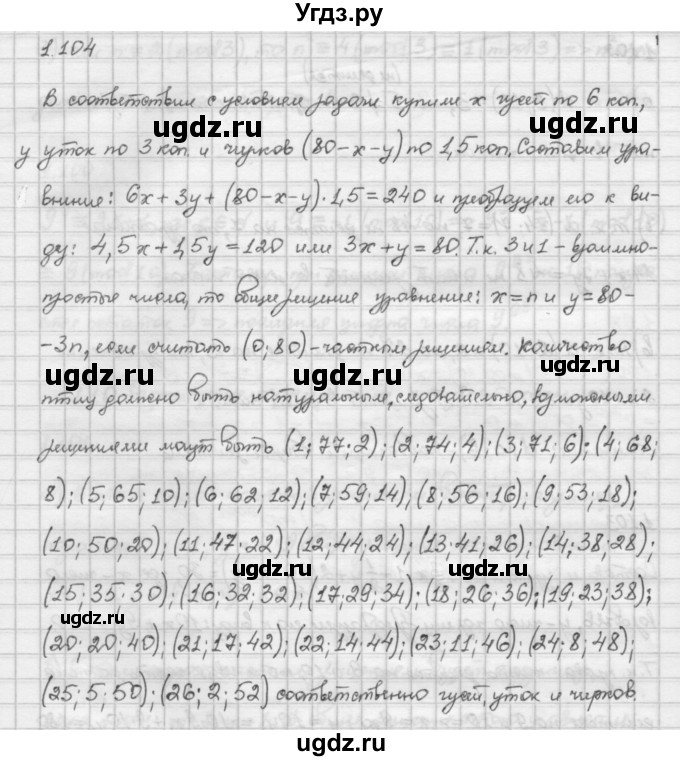 Угдз.ру
1.104
В соответствии с условием задачи купили x гусей по 6 коп.,
y уток по 3 коп. и чирков (80-x-y) по 1,5 коп. Составим урав-
внение: 6x+3y+(80-x-y)·1,5=240 и преобразуем его к ви-
ду: 4,5x+1,5y=120 или 3x+y=80. Т.к. 3 и 1 - взаимно-
простые числа, то общие решение уравнение: x=n и y=80-
-3n, если считать (0;80)-частным решением. Количество
птиц должно быть натуральным, следовательно, возможными
решениями могут быть (1;77;2);(2;74;4);(3;71;6);(4;68;
8);(5;65;10);(6;62;12);(7;59;14),(8;56;16);(9;53;18);
(10;50;20);(11;47;22);(12;44;24);(13;41;26);(14;38;28);
(15;35·30);(16;32;32);(17;29;34);(18;26;36;(19;23;38);
(20;20;40);(21;17;42);(22;14;44);(23;11;46);(24;8;48);
(25;5;50);(26;2;52) соответственно гусей, уток и чирков.
ugdz.ru
ugdz.ru
ugdz.ru
ugdz.ru
ugdz.ru
ugdz.ru
ugdz.ru
ugdz.ru
ugdz.ru
ugdz.ru
ugdz.ru